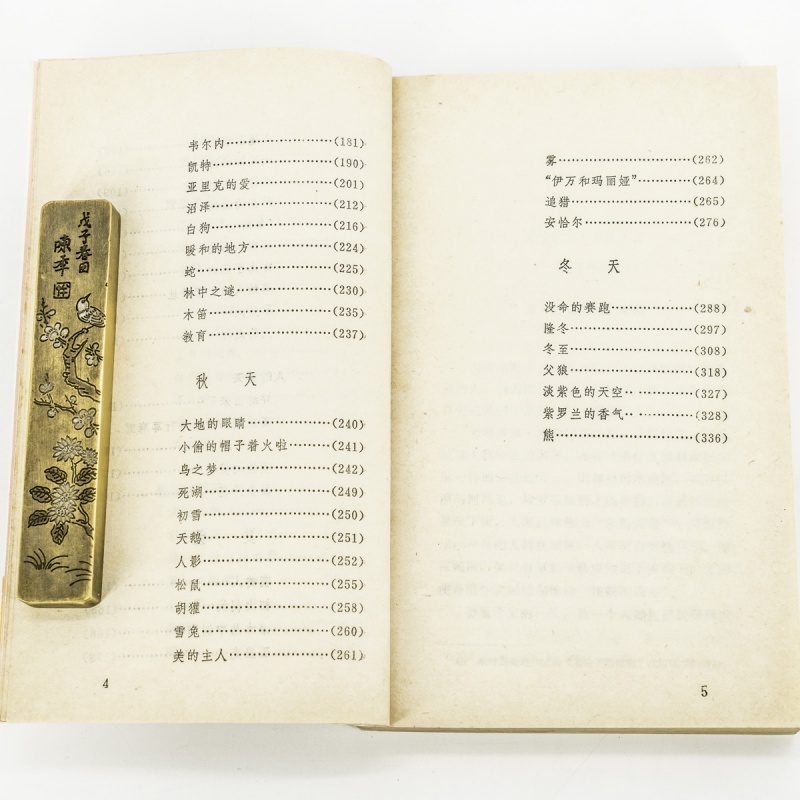 韦尔内……………………(181)
凯特……………………(190)
亚里克的爱……………………(201)
沼泽……………………(212)
白狗……………………(216)
暖和的地方……………………(224)
蛇……………………(225)
林中之谜……………………(230)
木笛……………………(235)
教育……………………(237)
秋 天
大地的眼睛……………………(240)
小偷的帽子着火啦……………………(241)
鸟之梦……………………(242)
死湖……………………(249)
初雪……………………(250)
天鹅……………………(251)
人影……………………(252)
松鼠……………………(255)
胡獾……………………(258)
雪兔……………………(260)
美的主人……………………(261)
4
戊子春日
陈年
雾……………………(262)
“伊万和玛丽娅”……………………(264)
追猎……………………(265)
安恰尔……………………(276)
冬 天
没命的赛跑……………………(288)
隆冬……………………(297)
冬至……………………(308)
父狼……………………(318)
淡紫色的天空……………………(327)
紫罗兰的香气……………………(328)
熊……………………(336)
5